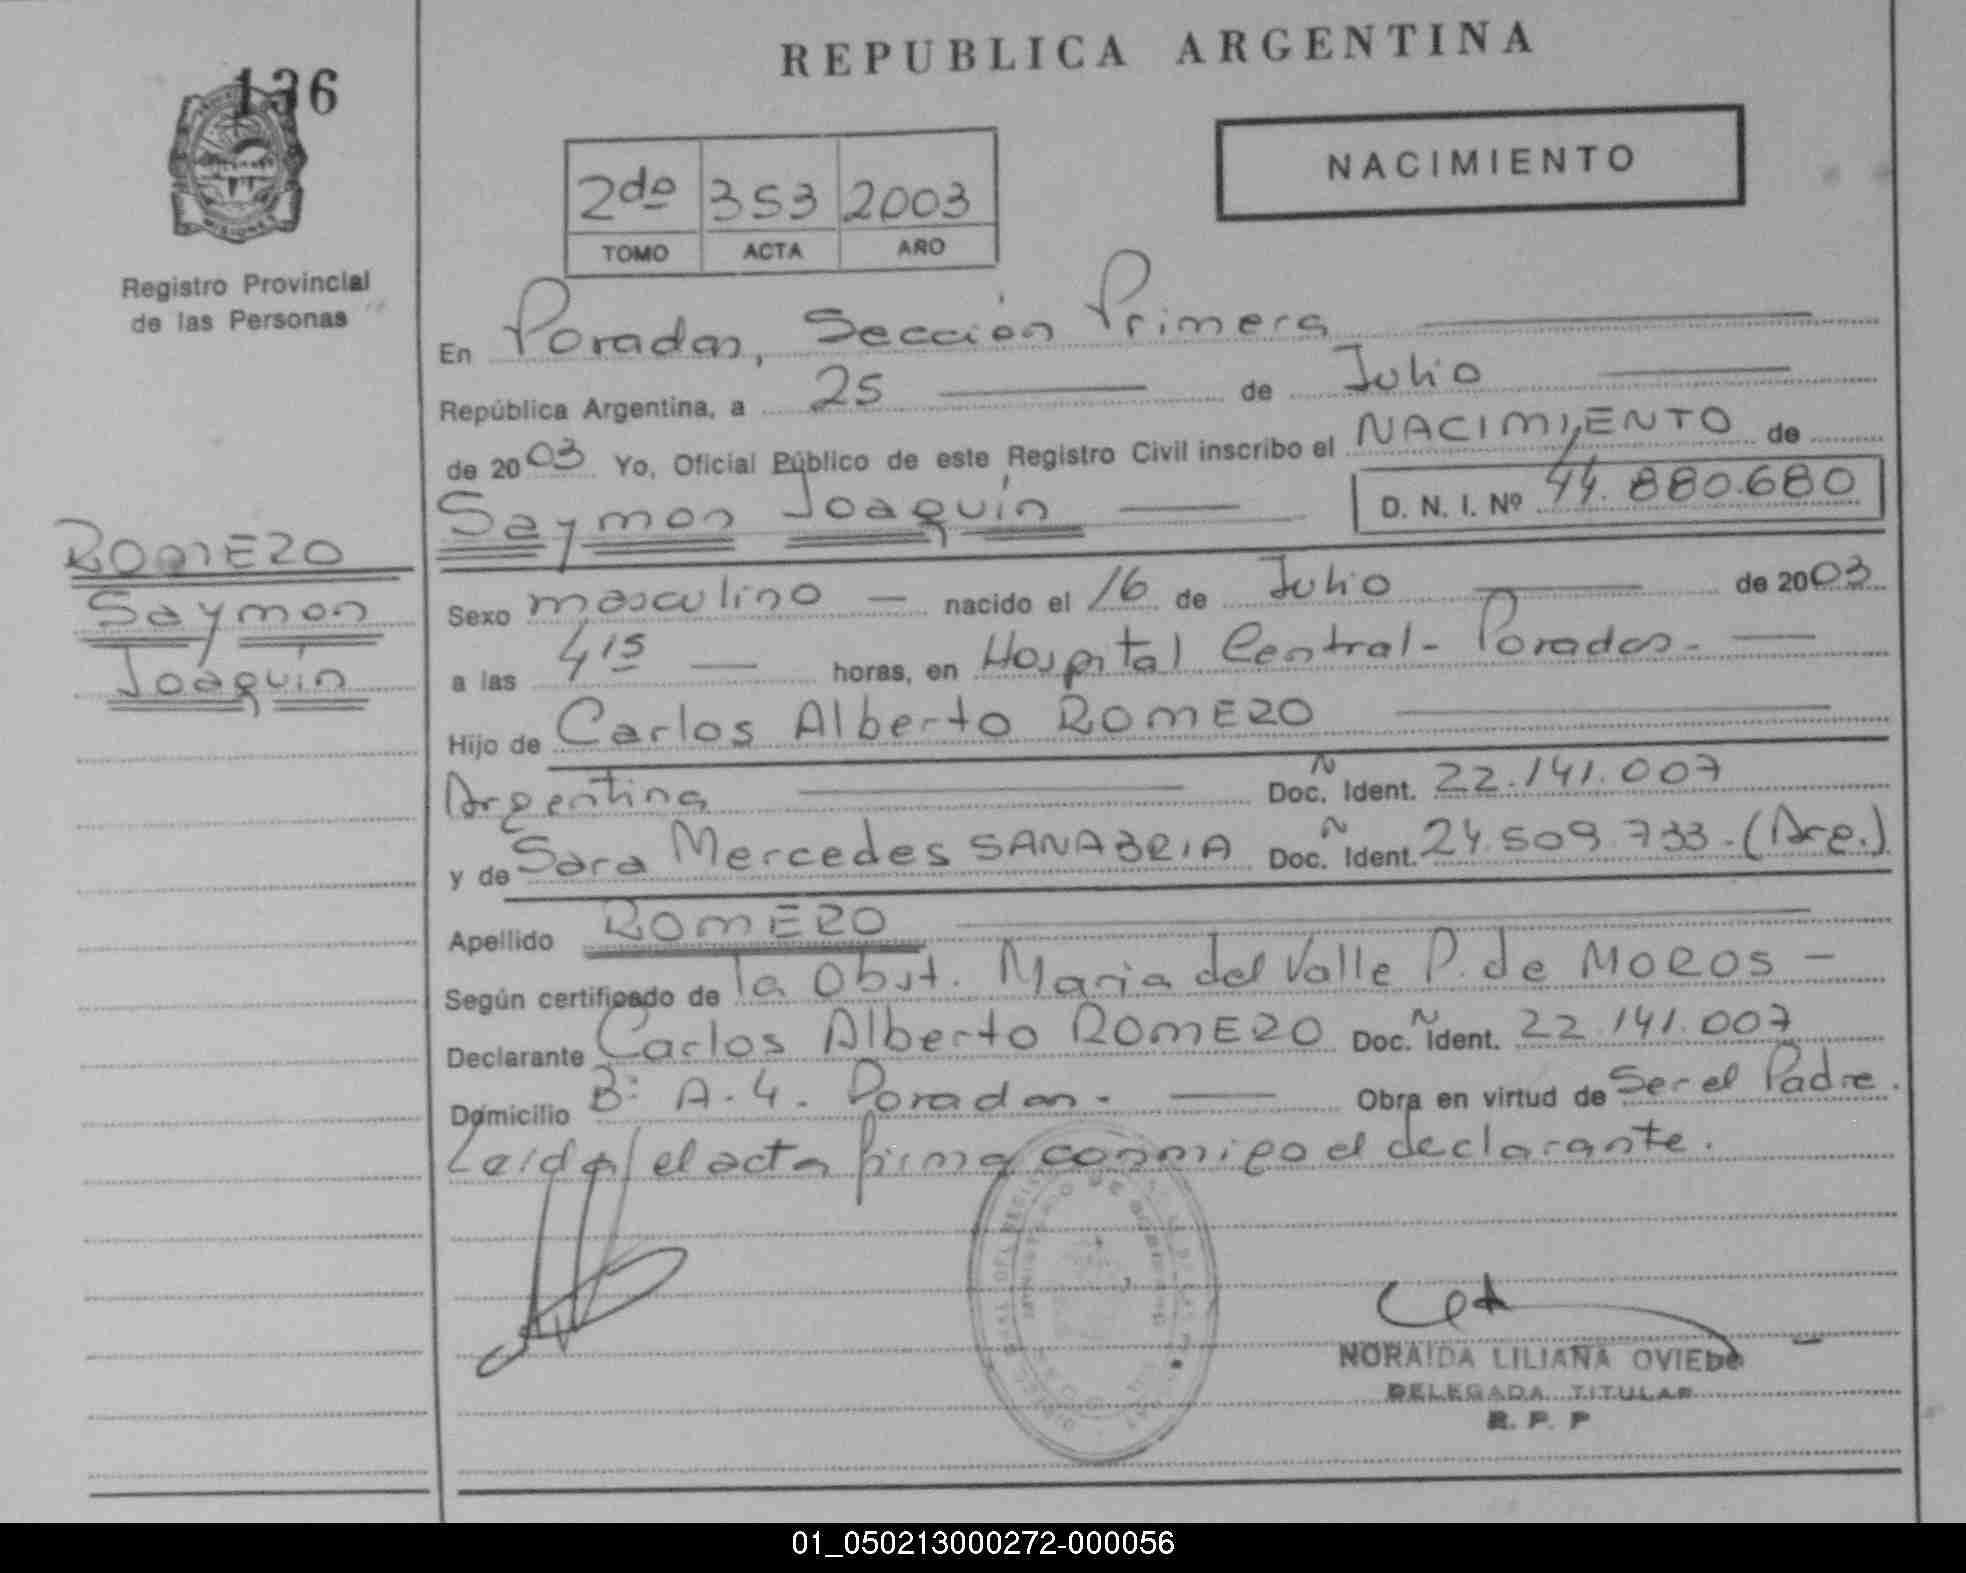 REPUBLICA ARGENTINA
136
NACIMIENTO
2do 353 2003
TOMO ACTA AÑO
Registro Provincial
de las Personas
En Posadas, Sección Primera
República Argentina, a 25 de Julio
de 2003 Yo, Oficial Público de este Registro Civil inscribo el NACIMIENTO de
Saymon Joaquín D. N. I. Nº 44.880.680
ROMERO
Saymon
Joaquín
Sexo masculino nacido el 16 de Julio de 2003
a las 4 15 horas, en Hospital Central - Posadas -
Hijo de Carlos Alberto ROMERO
Argentina Doc. N Ident. 22.141.007
y de Sara Mercedes SANABRIA Doc. N Ident. 24.509.733 - (Arg.)
Apellido ROMERO
Según certificado de la Obst. Maria del Valle P. de MOROS -
Declarante Carlos Alberto ROMERO Doc. N Ident. 22.141.007
Domicilio Bº A-4. Posadas - Obra en virtud de Ser el Padre.
Leída el acta firma conmigo el declarante.
NORAIDA LILIANA OVIEDO
DELEGADA TITULAR
R. P. P
01_050213000272-000056